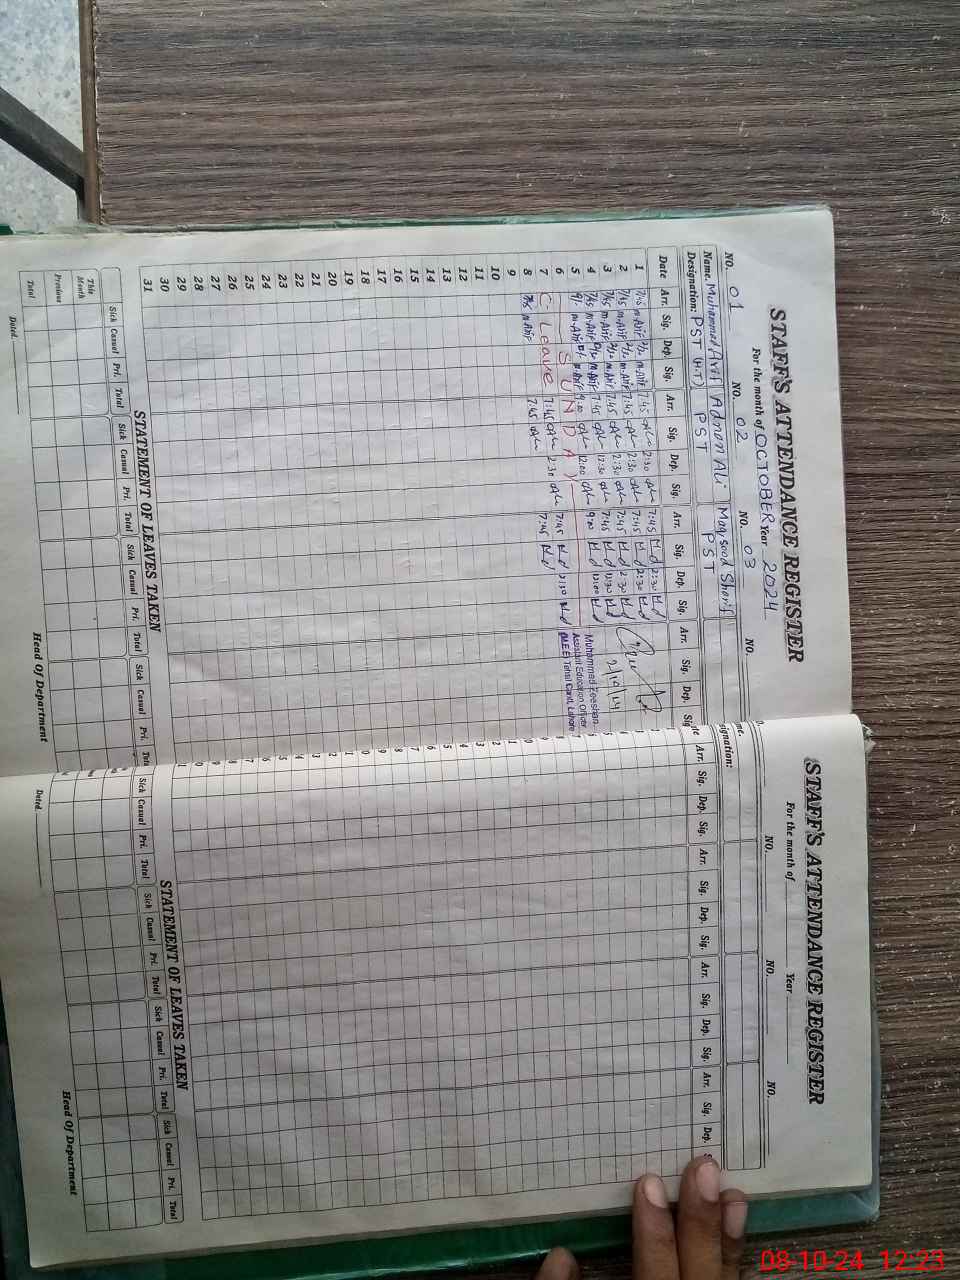 STAFF'S ATTENDANCE REGISTER
For the month of OCTOBER Year 2024
NO. 01 NO. 02 NO. 03 NO.
Name. Muhammad Arif Adnan Ali Maqsood Sharif
Designation: PST (H.T) PST PST
Date Arr. Sig. Dep. Sig. Arr. Sig. Dep. Sig. Arr. Sig. Dep. Sig. Arr. Sig. Dep. Sig
1 7:45 m.Arif m.Arif 7:45 2:30 7:45 2:30
2 7:45 m.Arif m.Arif 7:45 2:30 7:45 2:30
3 7:45 m.Arif m.Arif 7:45 2:30 7:45 2:30
4 7:45 m.Arif m.Arif 7:45 12:30 7:45 12:30
5 9/- m.Arif m.Arif 9:00 12:00 9:00 12:00
6 SUNDAY
7 C. Leave 7:45 2:30 7:45 2:30
8 7:45 m.Arif 7:45 7:45
9
10
11
12
13
14
15
16
17
18
19
20
21
22
23
24
25
26
27
28
29
30
31
Muhammad Zeeshan
Assistant Education Officer
(M.E.E) Tehsil Cantt, Lahore
STATEMENT OF LEAVES TAKEN
Sick Casual Pri. Total Sick Casual Pri. Total Sick Casual Pri. Total Sick Casual Pri. Tota
This Month
Previous
Total
Dated. Head Of Department
STAFF'S ATTENDANCE REGISTER
For the month of Year
NO. NO. NO.
Arr. Sig. Dep. Sig. Arr. Sig. Dep. Sig. Arr. Sig. Dep. Sig. Arr. Sig. Dep.
STATEMENT OF LEAVES TAKEN
Sick Casual Pri. Total Sick Casual Pri. Total Sick Casual Pri. Total Sick Casual Pri. Total
Dated. Head Of Department
08-10-24 12:23